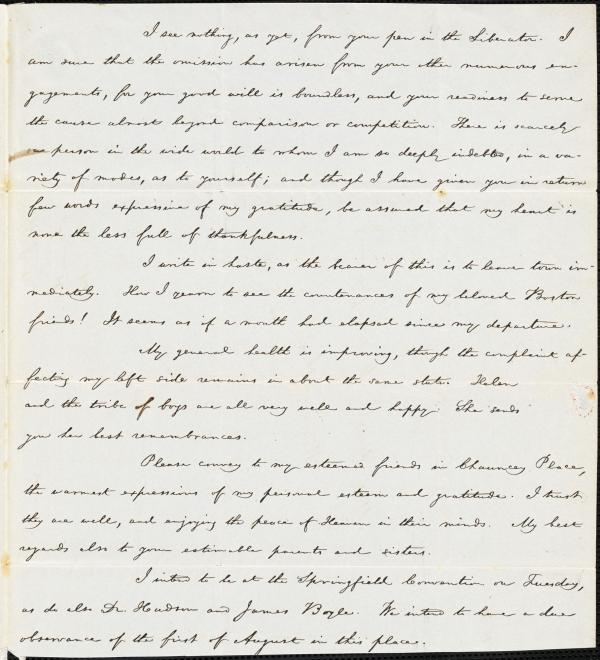 I see nothing, as yet, from your pen in the Liberator. I
am sure that the omission has arisen from your other numerous en-
gagements, for your good will is boundless, and your readiness to serve
the cause almost beyond comparison or competition. There is scarcely
a person in the wide world to whom I am so deeply indebted, in a va-
riety of modes, as to yourself; and though I have given you in return
few words expressive of my gratitude, be assured that my heart is
none the less full of thankfulness.
I write in haste, as the bearer of this is to leave town im-
mediately. How I yearn to see the countenances of my beloved Boston
friends! It seems as if a month had elapsed since my departure.
My general health is improving, though the complaint af-
fecting my left side remains in about the same state. Helen
and the tribe of boys are all very well and happy. She sends
you her best remembrances.
Please convey to my esteemed friends in Chauncey Place,
the warmest expressions of my personal esteem and gratitude. I trust
they are well, and enjoying the peace of Heaven in their minds. My best
regards also to your estimable parents and sisters.
I intend to be at the Springfield Convention on Tuesday,
as do also Dr. Hudson and James Boyle. We intend to have a due
observance of the first of August in this place.